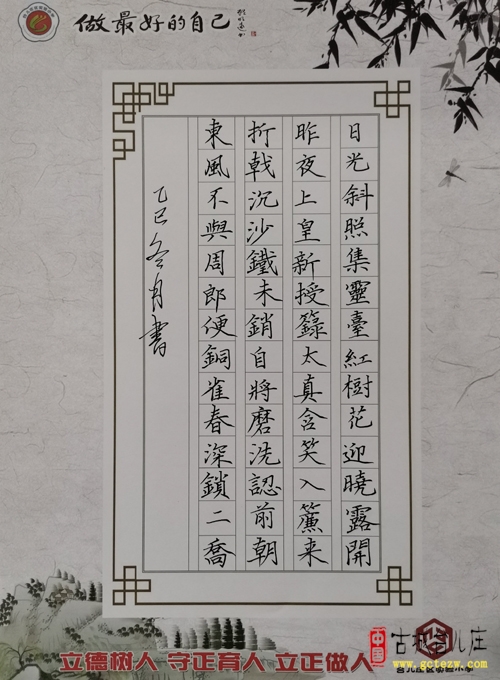 做最好的自己
日光斜照集靈臺紅樹花迎曉露開
昨夜上皇新授籙太真含笑入簾来
折戟沉沙鐵未銷自將磨洗認前朝
東風不與周郎便銅雀春深鎖二喬
乙巳冬月書
立德树人 守正育人 立正做人
中国 古城台儿庄
www.gctezw.com